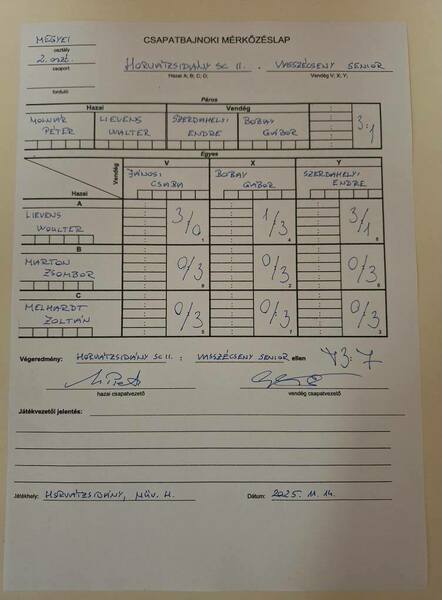 CSAPATBAJNOKI MÉRKŐZÉSLAP
MEGYEI
osztály
2. oszt.
csoport
forduló
HORVÁTZSIDÁNY SC II. - VASSZÉCSENY SENIOR
Hazai A; B; C; D; Vendég V; X; Y;
Páros
Hazai Vendég
MOLNÁR PÉTER LIEVENS WALTER SZERDAHELYI ENDRE BOBAY GÁBOR 3:1
Egyes
Vendég
Hazai
V X Y
JÁNOSI CSABA BOBAY GÁBOR SZERDAHELYI ENDRE
A
LIEVENS WOULTER 3/0 1/3 3/1
B
MARTON ZSOMBOR 0/3 0/3 0/3
C
MELHARDT ZOLTÁN 0/3 0/3 0/3
Végeredmény: HORVÁTZSIDÁNY SC II. : VASSZÉCSENY SENIOR ellen 3:7
hazai csapatvezető vendég csapatvezető
Játékvezetői jelentés:
Játékhely: HORVÁTZSIDÁNY, MŰV. H. Dátum: 2025. 11. 14.